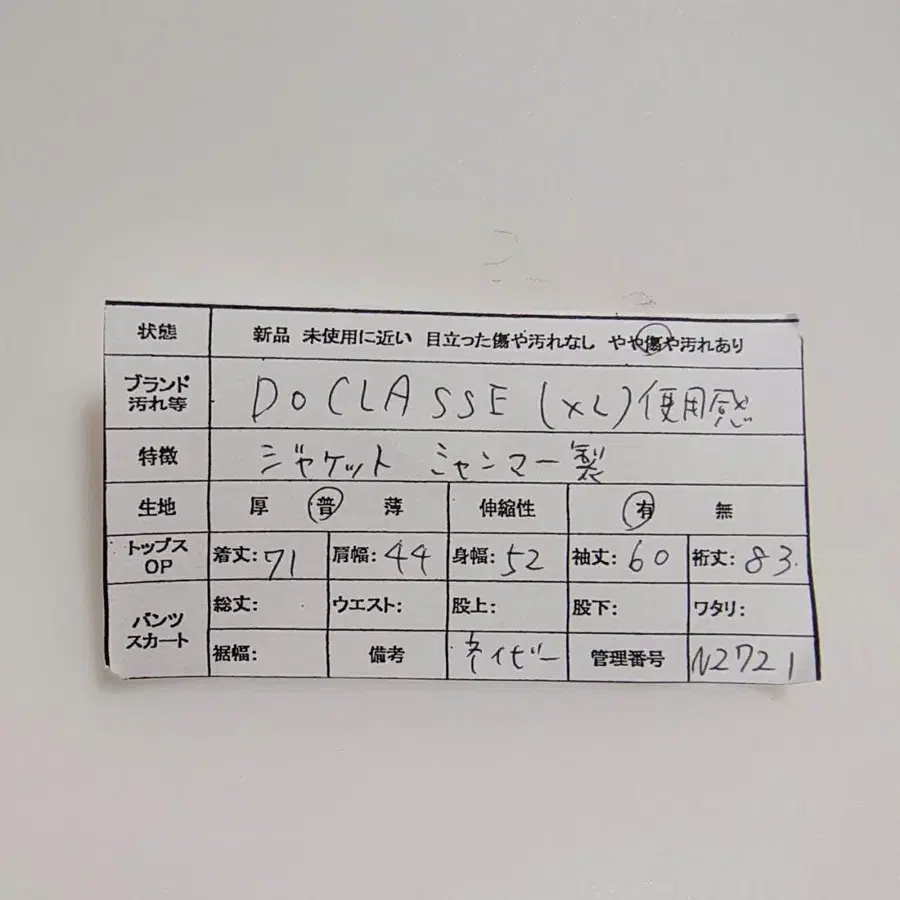 状態 新品 未使用に近い 目立った傷や汚れなし やや傷や汚れあり
ブランド 汚れ等 DoCLASSE (XL) 使用感
特徴 ジャケット ミャンマー製
生地 厚 普 薄 伸縮性 有 無
トップス OP 着丈: 71 肩幅: 44 身幅: 52 袖丈: 60 裄丈: 83
パンツ スカート 総丈: ウエスト: 股上: 股下: ワタリ:
裾幅: 備考 ネイビー 管理番号 N2721